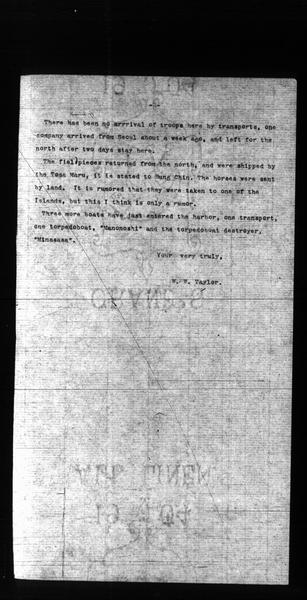 -2-
There has been no arrrival of troops here by transports, one
company arrived from Seoul about a week ago, and left for the
north after two days stay here.
The field pieces returned from the north, and were shipped by
the Tosa Maru, it is stated to Sung Chin. The horses were sent
by land. It is rumored that they were taken to one of the
Islands, but this I think is only a rumor.
Three more boats have just entered the harbor, one transport,
one torpedoboat, "Manonoshi" and the torpedoboat destroyer,
"Minasama".
Your very truly,
W. W. Taylor.
CRANE'S
ALL LINEN
19 04